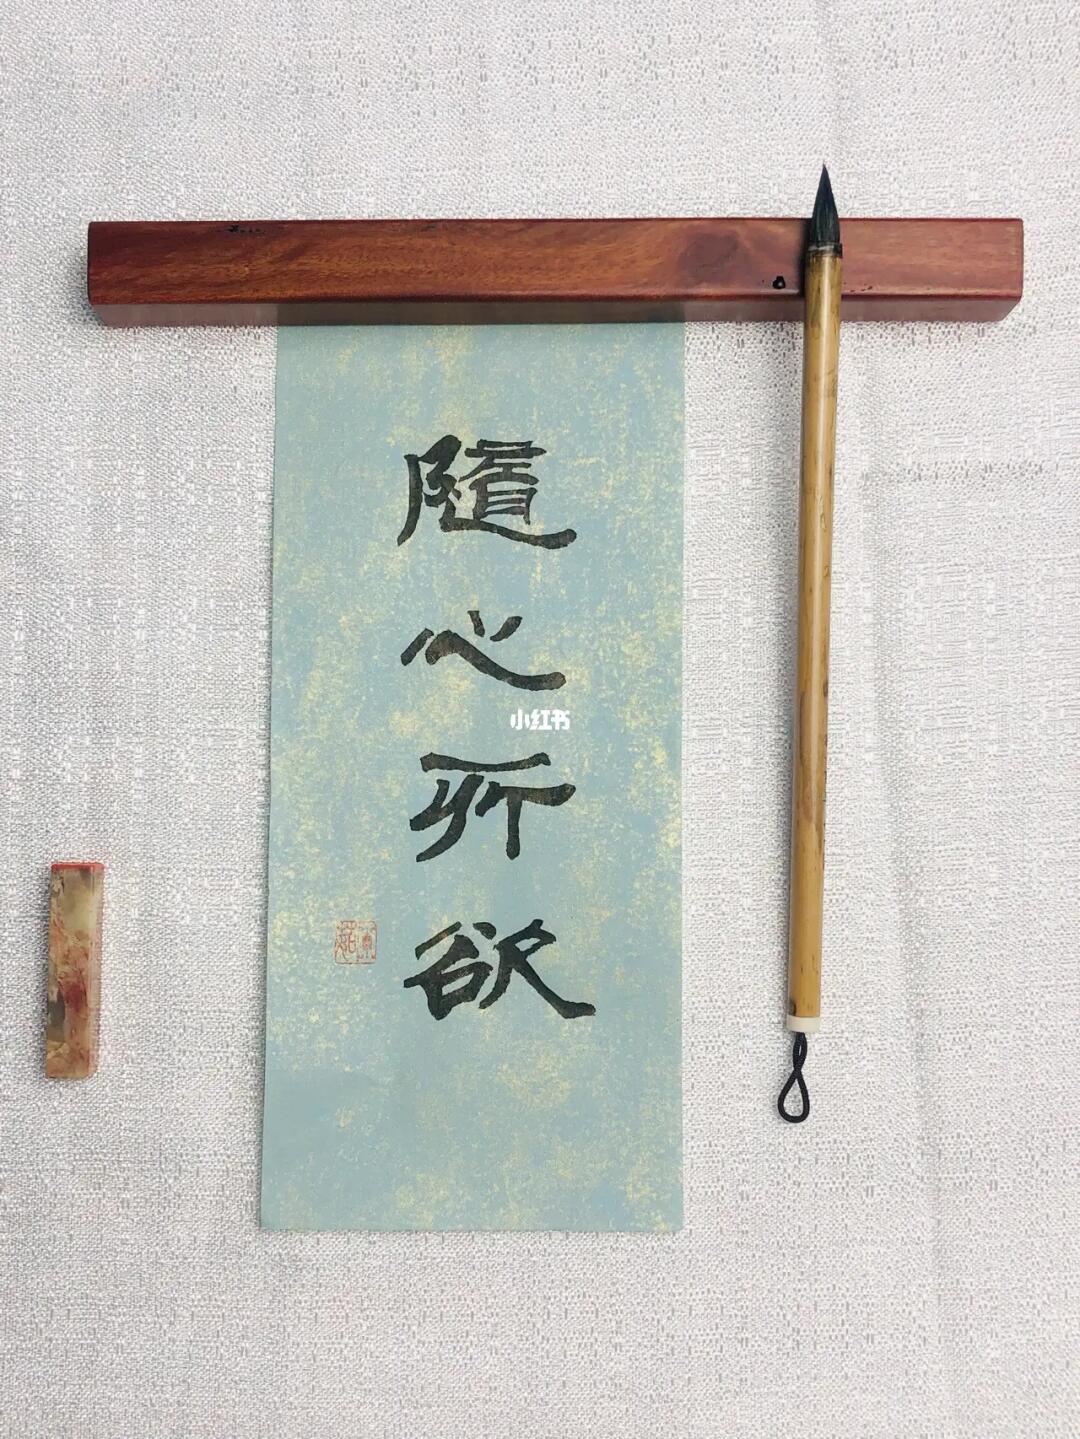 隨心所欲
小红书